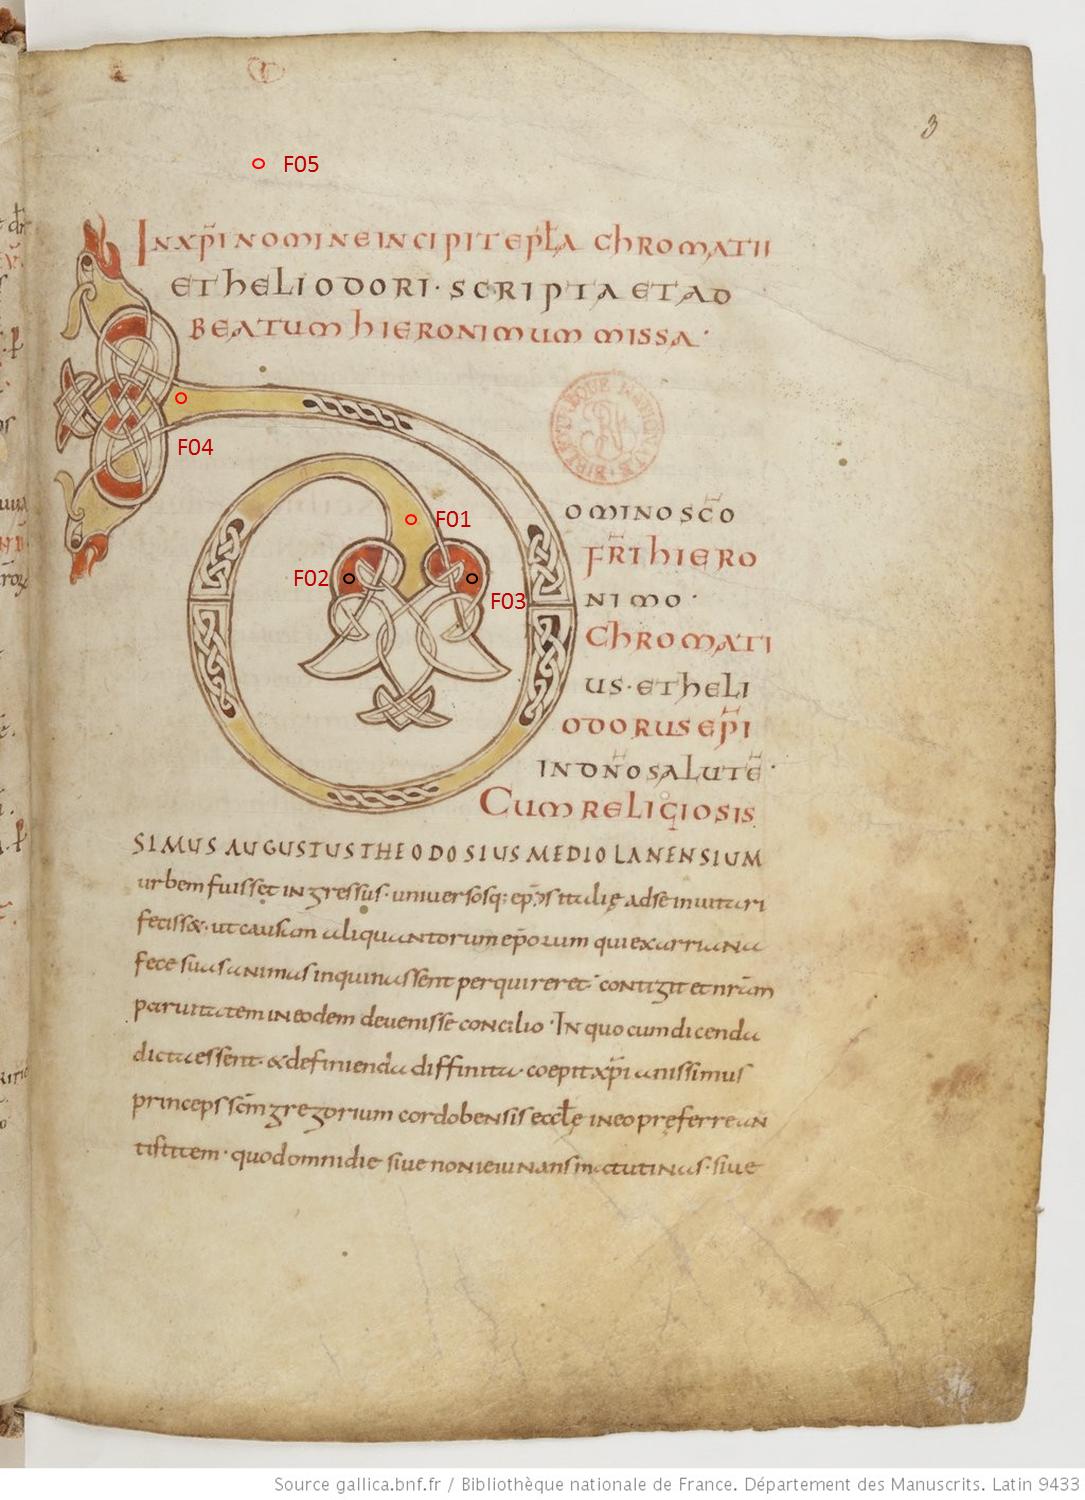 3
F05
INXP̄I NOMINE INCIPIT EPƚA CHROMATII
ET HELIODORI · SCRIPTA ET AD
BEATUM HIERONIMUM MISSA ·
F04
F01
F02
F03
OMINO SC̄O
FR̄I HIERO
NIMO ·
CHROMATI
US · ET HELI
ODORUS EP̄I
IN DN̄O SALUTĒ ·
CUM RELIGIOSIS
SIMUS AUGUSTUS THEODOSIUS MEDIOLANENSIUM
urbem fuisset ingressus · universosq; ep̄os italię ad se invitari
feciss& · ut causam aliquantorum ep̄orum qui exarriana
fece suas animas inquinassent perquireret · contigit et nr̄am
parvitatem in eodem devenisse concilio · In quo cum dicenda
dicta essent · & definienda diffinita · coepit xp̄ianissimus
princeps sc̄m gregorium cordobensis eccƚę in eo preferre an
tistitem · quod omni die sive non ieiunans matutinas · sive
Source gallica.bnf.fr / Bibliothèque nationale de France. Département des Manuscrits. Latin 9433